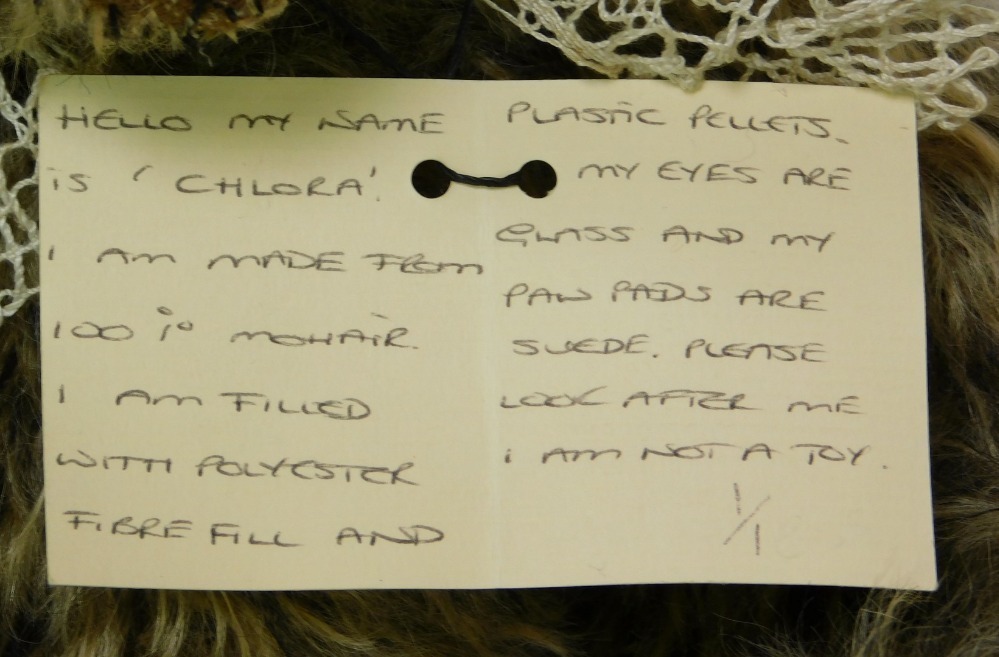 HELLO MY NAME
IS 'CHLORA'.
I AM MADE FROM
100 % MOHAIR.
I AM FILLED
WITH POLYESTER
FIBRE FILL AND
PLASTIC PELLETS.
MY EYES ARE
GLASS AND MY
PAW PADS ARE
SUEDE. PLEASE
LOOK AFTER ME
I AM NOT A TOY.
1/1